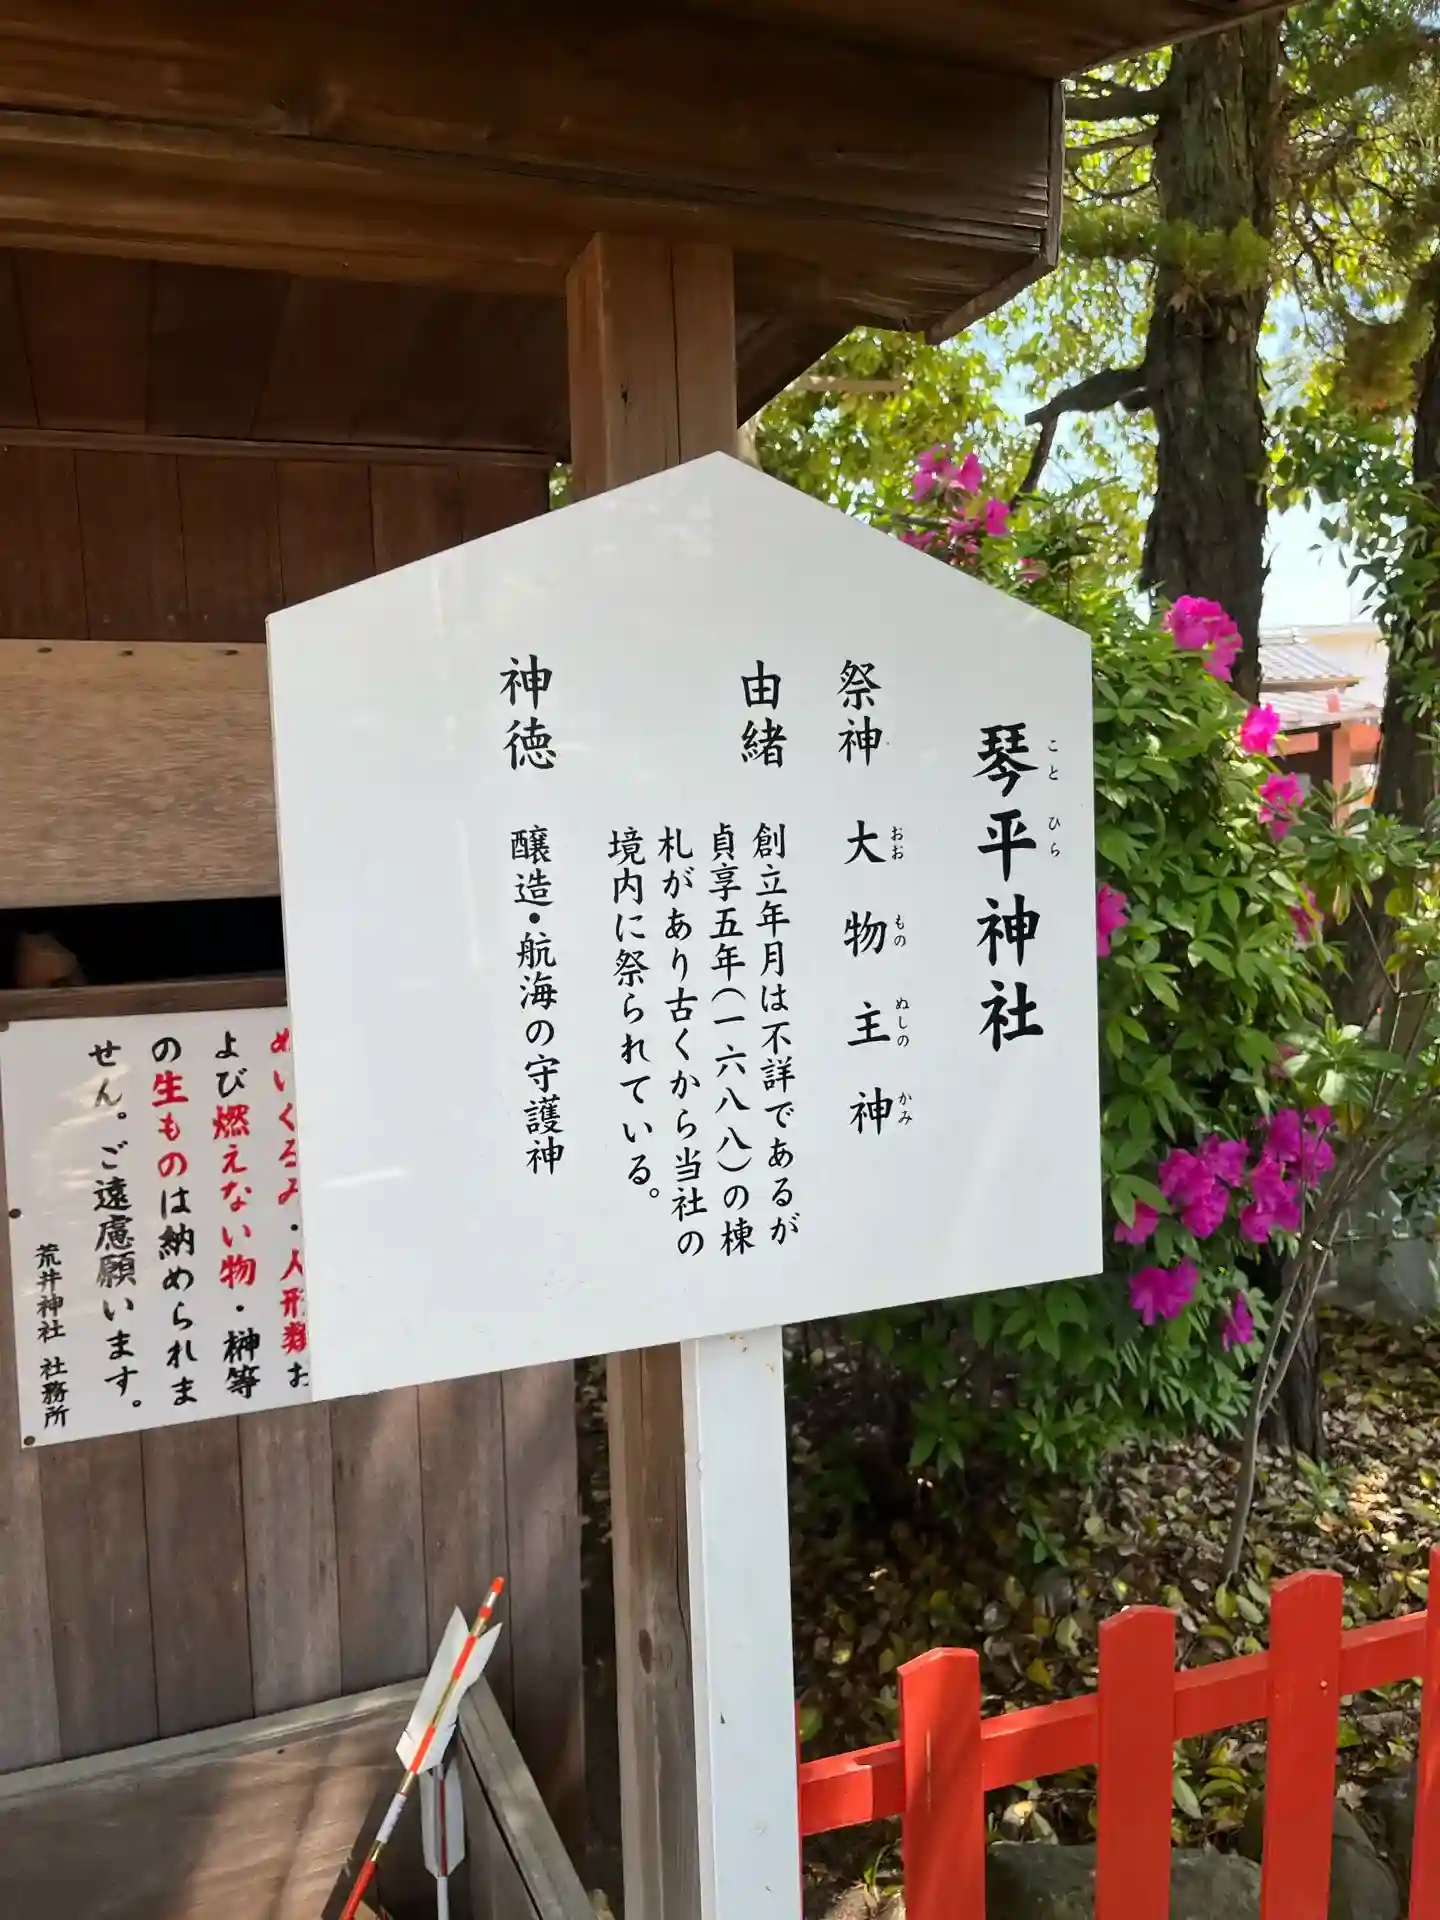 琴平神社
ことひら
祭神 大物主神
おおものぬしのかみ
由緒 創立年月は不詳であるが
貞享五年（一六八八）の棟
札があり古くから当社の
境内に祭られている。
神徳 醸造・航海の守護神
ぬいぐるみ・人形類お
よび燃えない物・榊等
の生ものは納められま
せん。ご遠慮願います。
荒井神社 社務所